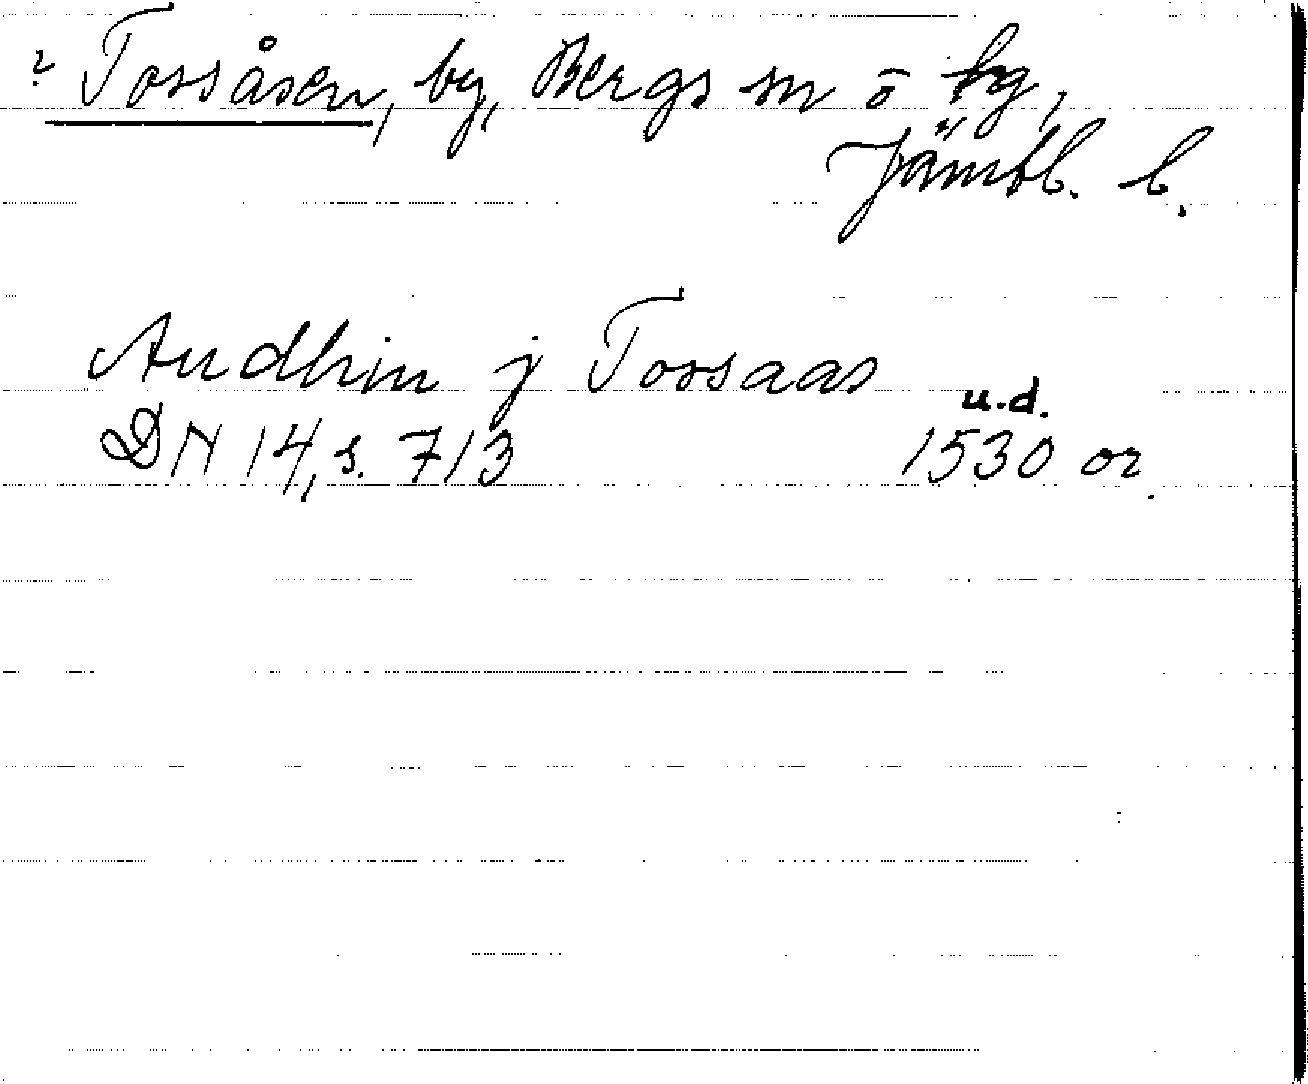 ? Tossåsen, by, Bergs sn o hg,
Jämtl. l.
Audhin j Tossaas
u.d.
DN 14, s. 713 1530 or.